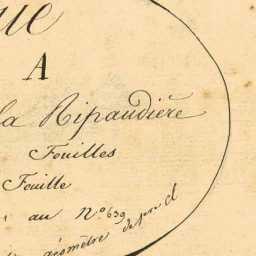 ue
A
la Ripaudière
Feuilles
Feuille
au N.º 639
géomètre de